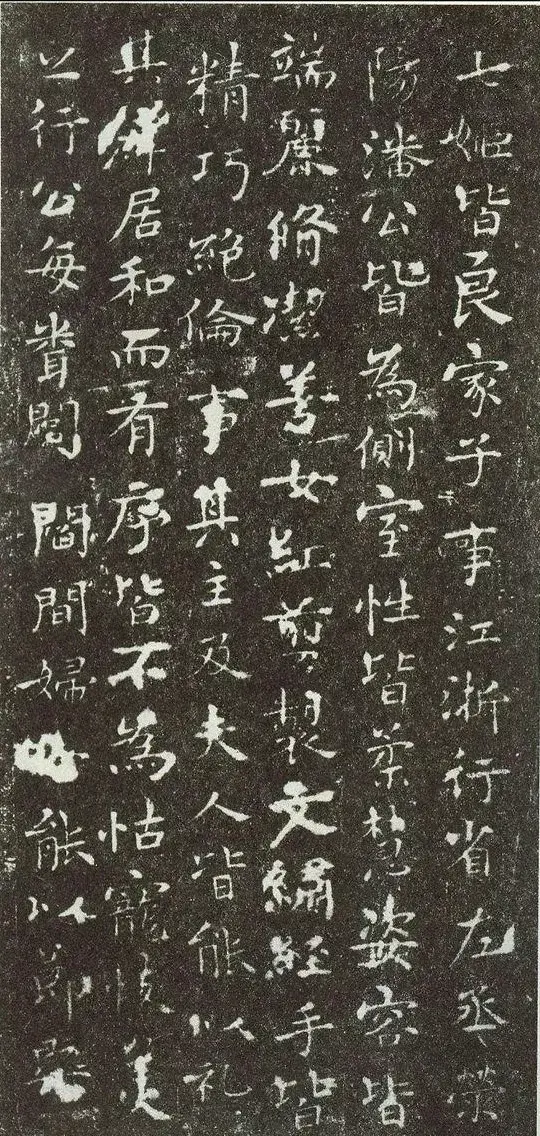 七姬皆良家子事江浙行省左丞荥
陽潘公皆為側室性皆柔慧姿容皆
端麗脩潔善女紅剪製文繡經手皆
精巧絕倫事其主及夫人皆能以礼
其羣居和而有序皆不為怙寵忮美
之行公每聞閭閻間婦有能以節